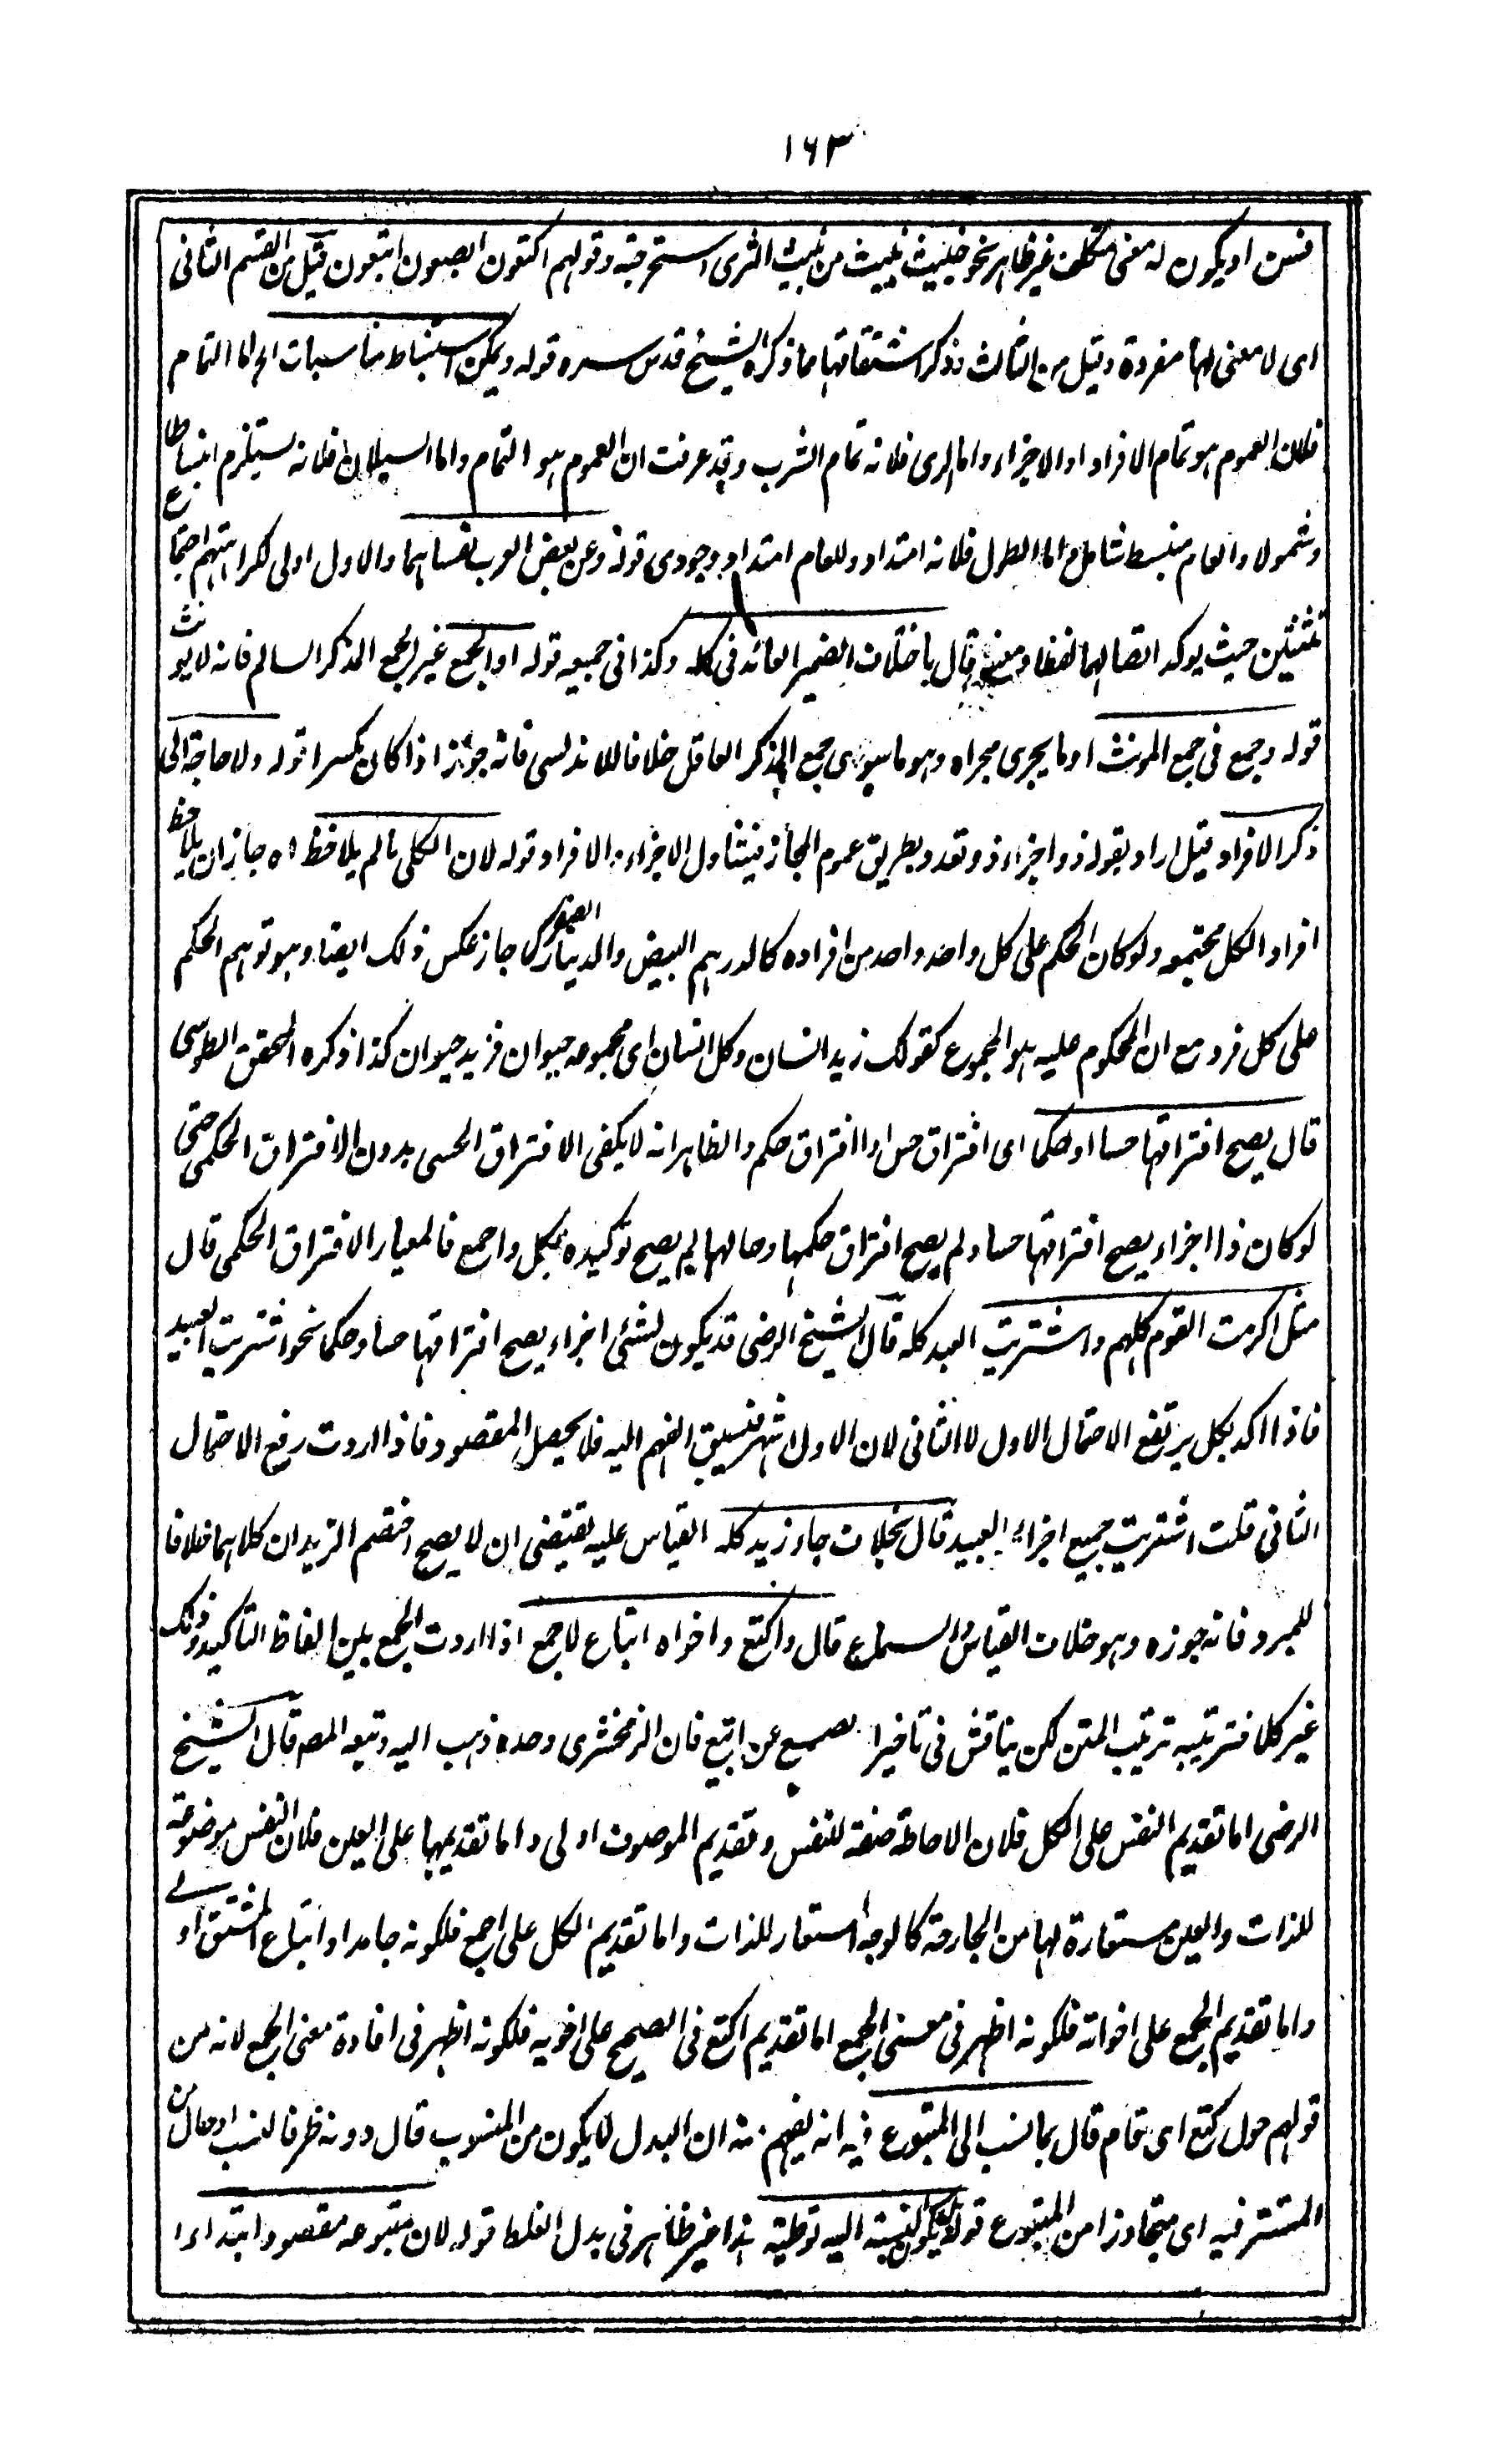 ١٦٣
فسن او يكون له معنى متكلف غير ظاهر نحو خبيث نبيث من نبيث الثرى استخرجته وقولهم اكتعون ابصعون ابتعون قيل من القسم الثانى
اى لا معنى لها مفردة وقيل من الثالث وذكر اشتقاقها مما ذكره الشيخ قدس سره قوله ويمكن استنباط مناسبات اه اما التمام
فلان العموم هو تمام الافراد او الاجزاء واما الرى فلانه تمام الشرب وقد عرفت ان العموم هو التمام واما السيلان فلانه يستلزم انبساطا
وشمولا والعام منبسط شامل واما الطول فلانه امتداد وللعام امتداد وجودى قوله وعن بعض العرب نفساهما والاول اولى لكراهتهم اجتماع
تثنيتين حيث يوكد اتصالهما لفظا ومعنى قال باختلاف الضمير العائد فى كله وكذا فى جميعه قوله او الجمع غير الجمع المذكر السالم فانه لا يونث
قوله وجمع فى جمع المونث او ما يجرى مجراه وهو ما سوى جمع المذكر العاقل خلافا للاندلسى فانه جوز اذا كان مكسرا قوله ولا حاجة الى
ذكر الافراد قيل اراد بقوله ذو اجزاء ذو تعدد بطريق عموم المجاز فيتناول الاجزاء والافراد قوله لان الكلى ما لم يلاحظ اه جاز ان يلاحظ
افراد الكل مجتمعة ولو كان الحكم على كل واحد واحد من افراده كالدرهم البيض والدينار الصفر كما جاز عكس ذلك ايضا وهو توهم الحكم
على كل فرد مع ان المحكوم عليه هو المجموع كقولك زيد انسان وكل انسان اى مجموعه حيوان فزيد حيوان كذا ذكره المحقق الطوسى
قال يصح افتراقها حسا او حكما اى افتراق حس او افتراق حكم والظاهر انه لا يكفى الافتراق الحسى بدون الافتراق الحكمى حتى
لو كان ذا اجزاء يصح افتراقها حسا ولم يصح افتراق حكمها وحالها لم يصح توكيده بكل واجمع فالمعيار الافتراق الحكمى قال
مثل اكرمت القوم كلهم واشتريت العبد كله قال الشيخ الرضى قد يكون لشئ اجزاء يصح افتراقها حسا وحكما نحو اشتريت العبيد
فاذا اكد بكل يرتفع الاحتمال الاول لا الثانى لان الاول اشهر فيسبق الفهم اليه فلا يحصل المقصود فاذا اردت رفع الاحتمال
الثانى قلت اشتريت جميع اجزاء العبيد قال بخلاف جاء زيد كله القياس عليه يقتضى ان لا يصح اختصم الزيدان كلاهما خلافا
للمبرد فانه جوزه وهو خلاف القياس والسماع قال واكتع واخواه اتباع لاجمع اذا اردت الجمع بين الفاظ التاكيد وذلك
غير كلا فترتيبه ترتيب المتن لكن يناقش فى تاخير ابصع عن ابتع فان الزمخشرى وحده ذهب اليه وتبعه المصه قال الشيخ
الرضى اما تقديم النفس على الكل فلان الاحاطة صفة للنفس وتقديم الموصوف اولى واما تقديمها على العين فلان النفس موضوعة
للذات والعين مستعارة لها من الجارحة كالوجه استعار للذات واما تقديم الكل على اجمع فلكونه جامدا واتباع المشتق اولى
واما تقديم اجمع على اخواته فلكونه اظهر فى معنى الجمع اما تقديم اكتع فى الصحيح على اخويه فلكونه اظهر فى افادة معنى الجمع لانه من
قولهم حول كتع اى تمام قال بما نسب الى المتبوع فيه انه يفهم منه ان البدل لا يكون من المنسوب قال دونه ظرف لنسب او حال من
المستتر فيه اى متجاوزا من المتبوع قوله النسبة اليه توطية هذا غير ظاهر فى بدل الغلط قوله لان متبوعه مقصود ابتداء